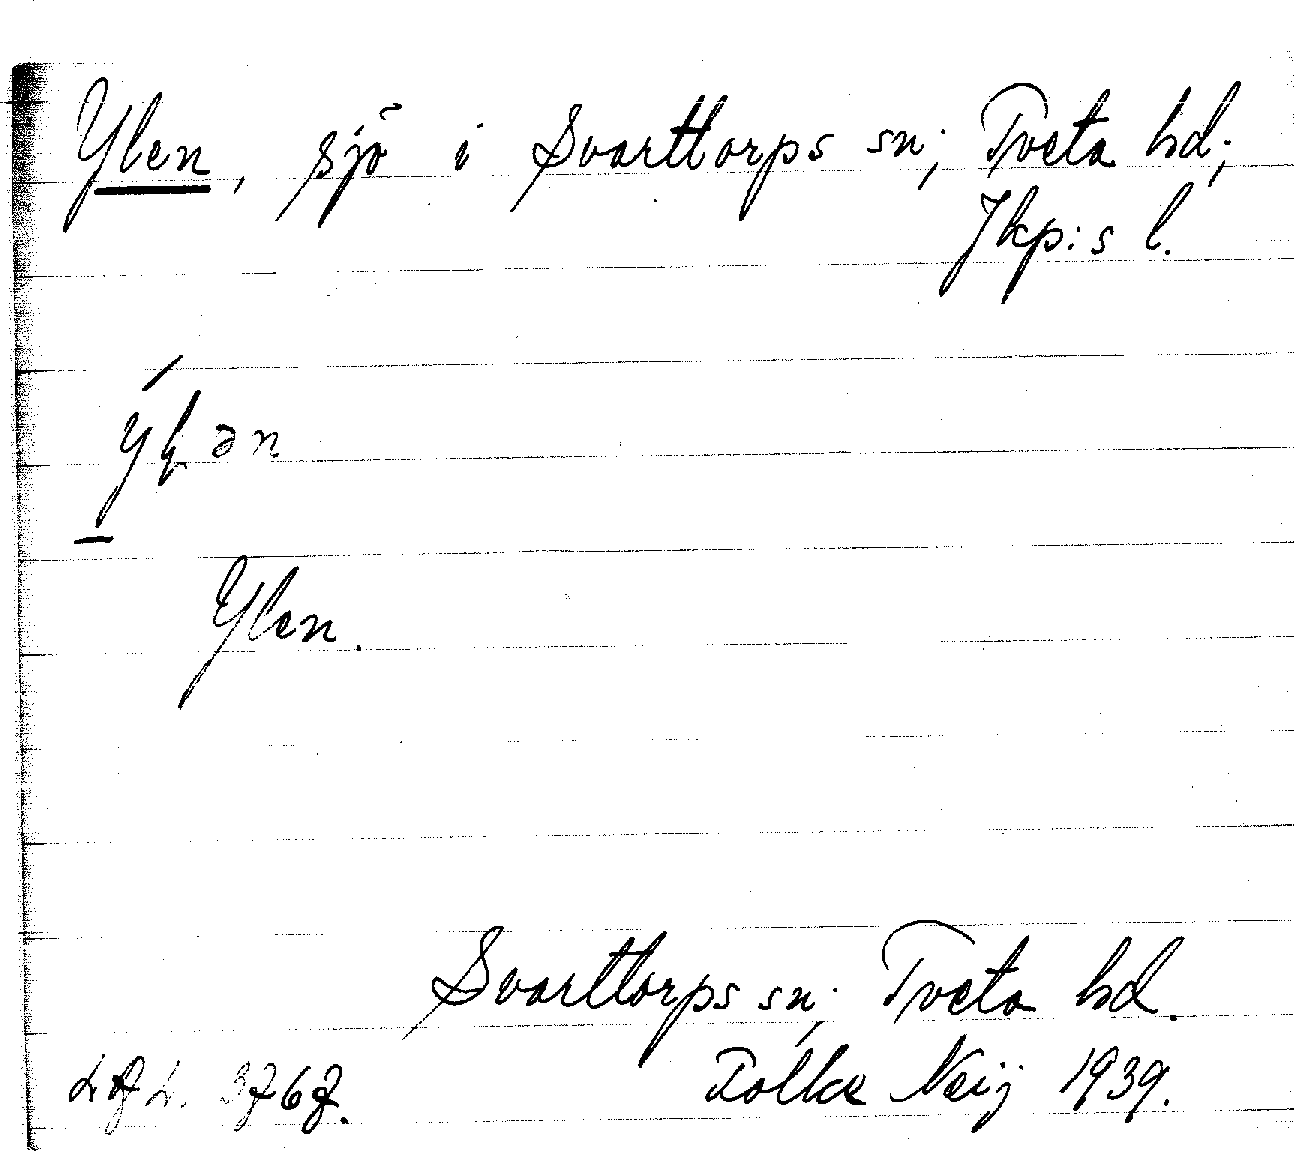 Ylen, sjö i Svarttorps sn; Tveta hd;
Jkp:s l.
Ylen.
Svarttorps sn; Tveta hd.
Folke Neij 1939.
3767.